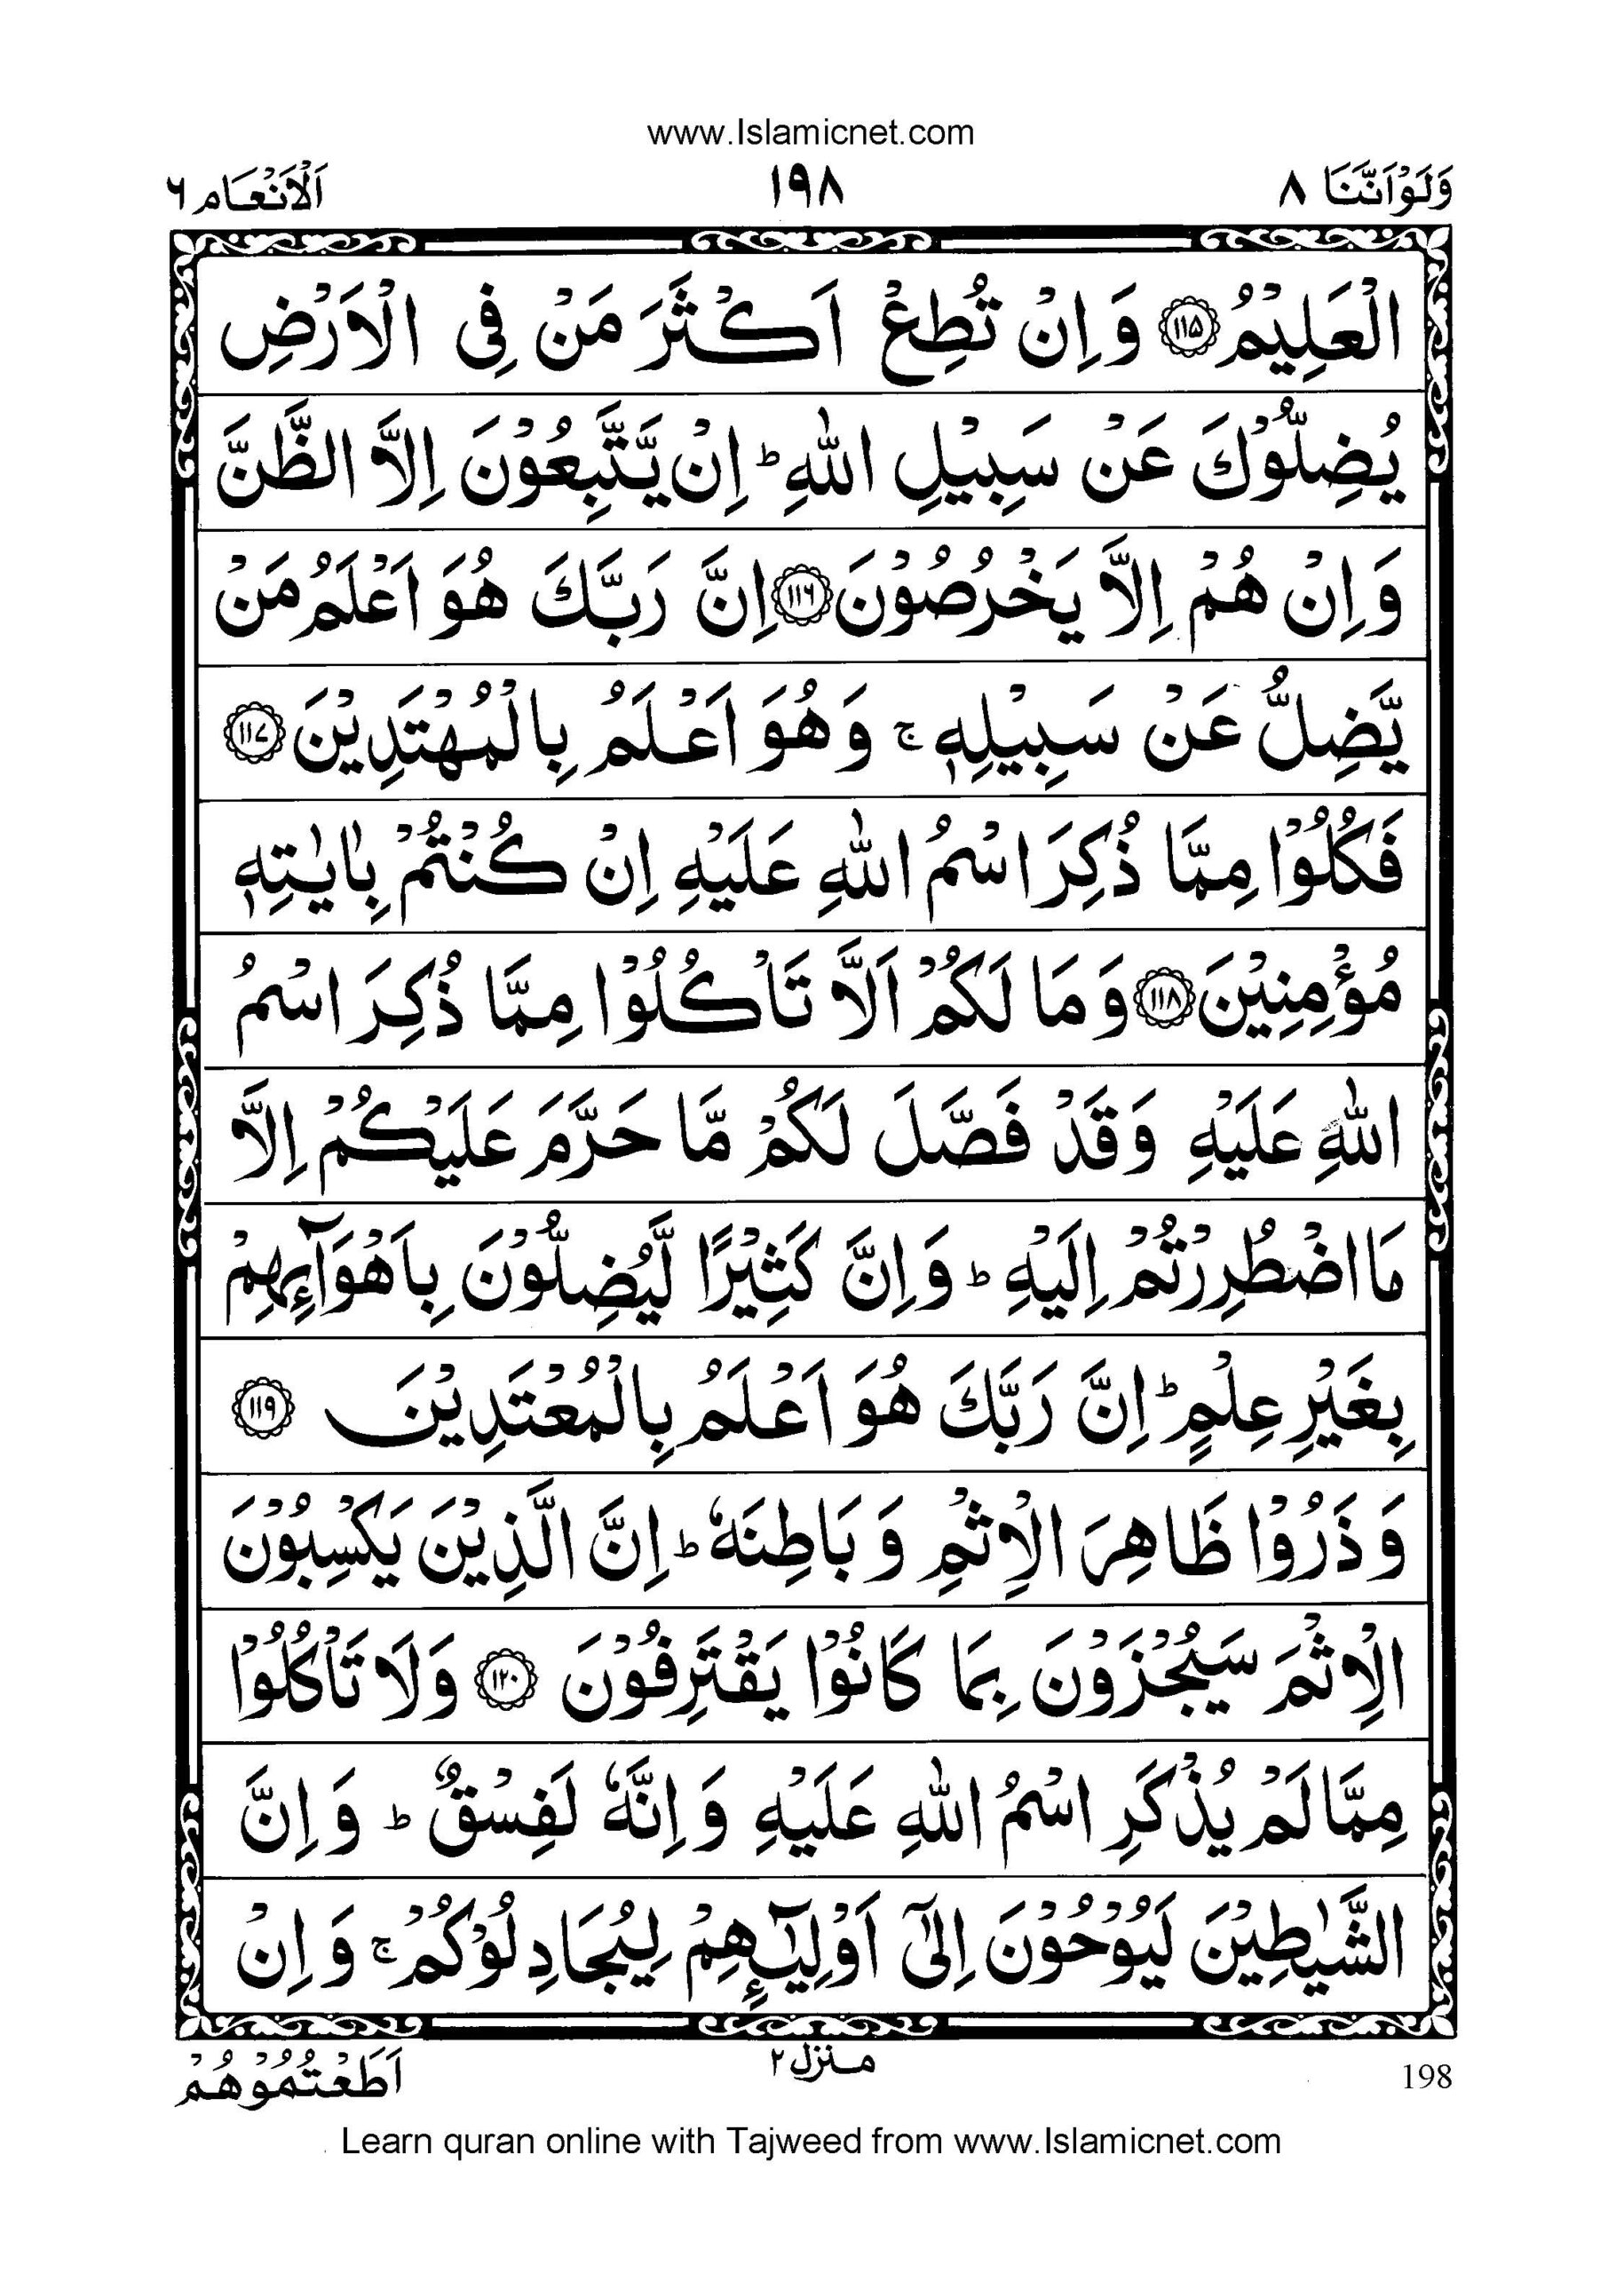 www.Islamicnet.com
وَلَوْاَنَّنَا ٨
١٩٨
اَلْاَنْعَام ٦
الْعَلِيْمُ ﴿۱۱۵﴾ وَ اِنْ تُطِعْ اَكْثَرَ مَنْ فِى الْاَرْضِ
يُضِلُّوْكَ عَنْ سَبِيْلِ اللّٰهِ ؕ اِنْ يَّتَّبِعُوْنَ اِلَّا الظَّنَّ
وَ اِنْ هُمْ اِلَّا يَخْرُصُوْنَ ﴿۱۱۶﴾ اِنَّ رَبَّكَ هُوَ اَعْلَمُ مَنْ
يَّضِلُّ عَنْ سَبِيْلِهٖ ۚ وَ هُوَ اَعْلَمُ بِالْمُهْتَدِيْنَ ﴿۱۱۷﴾
فَكُلُوْا مِمَّا ذُكِرَ اسْمُ اللّٰهِ عَلَيْهِ اِنْ كُنْتُمْ بِاٰيٰتِهٖ
مُؤْمِنِيْنَ ﴿۱۱۸﴾ وَ مَا لَكُمْ اَلَّا تَاْكُلُوْا مِمَّا ذُكِرَ اسْمُ
اللّٰهِ عَلَيْهِ وَقَدْ فَصَّلَ لَكُمْ مَّا حَرَّمَ عَلَيْكُمْ اِلَّا
مَا اضْطُرِرْتُمْ اِلَيْهِ ؕ وَ اِنَّ كَثِيْرًا لَّيُضِلُّوْنَ بِاَهْوَآئِهِمْ
بِغَيْرِ عِلْمٍ ؕ اِنَّ رَبَّكَ هُوَ اَعْلَمُ بِالْمُعْتَدِيْنَ ﴿۱۱۹﴾
وَ ذَرُوْا ظَاهِرَ الْاِثْمِ وَ بَاطِنَهٗ ؕ اِنَّ الَّذِيْنَ يَكْسِبُوْنَ
الْاِثْمَ سَيُجْزَوْنَ بِمَا كَانُوْا يَقْتَرِفُوْنَ ﴿۱۲۰﴾ وَلَا تَاْكُلُوْا
مِمَّا لَمْ يُذْكَرِ اسْمُ اللّٰهِ عَلَيْهِ وَ اِنَّهٗ لَفِسْقٌ ؕ وَ اِنَّ
الشَّيٰطِيْنَ لَيُوْحُوْنَ اِلٰٓى اَوْلِيٰٓـئِهِمْ لِيُجَادِلُوْكُمْ ۚ وَ اِنْ
198
منزل ۲
اَطَعْتُمُوْهُمْ
Learn quran online with Tajweed from www.Islamicnet.com